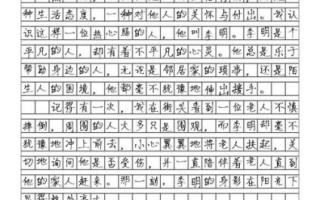 种生活态度，一种对他人的关怀与付出。我认
识这样一位热心肠的人，他叫李明。李明是个
平凡的人，却有着不平凡的心灵。他总是乐于
帮助身边的人，无论是邻居家的琐事，还是陌
生人的困境，他都毫不犹豫地伸出援手。
记得有一次，我在街头看到一位老人不慎
摔倒，周围的人大多只是围观，而李明却毫不
犹豫地冲上前去，小心翼翼地将老人扶起，关
切地询问他是否受伤，并一直陪伴着老人直到
他的家人赶来。那一刻，李明的身影在阳光下
显得格外高大